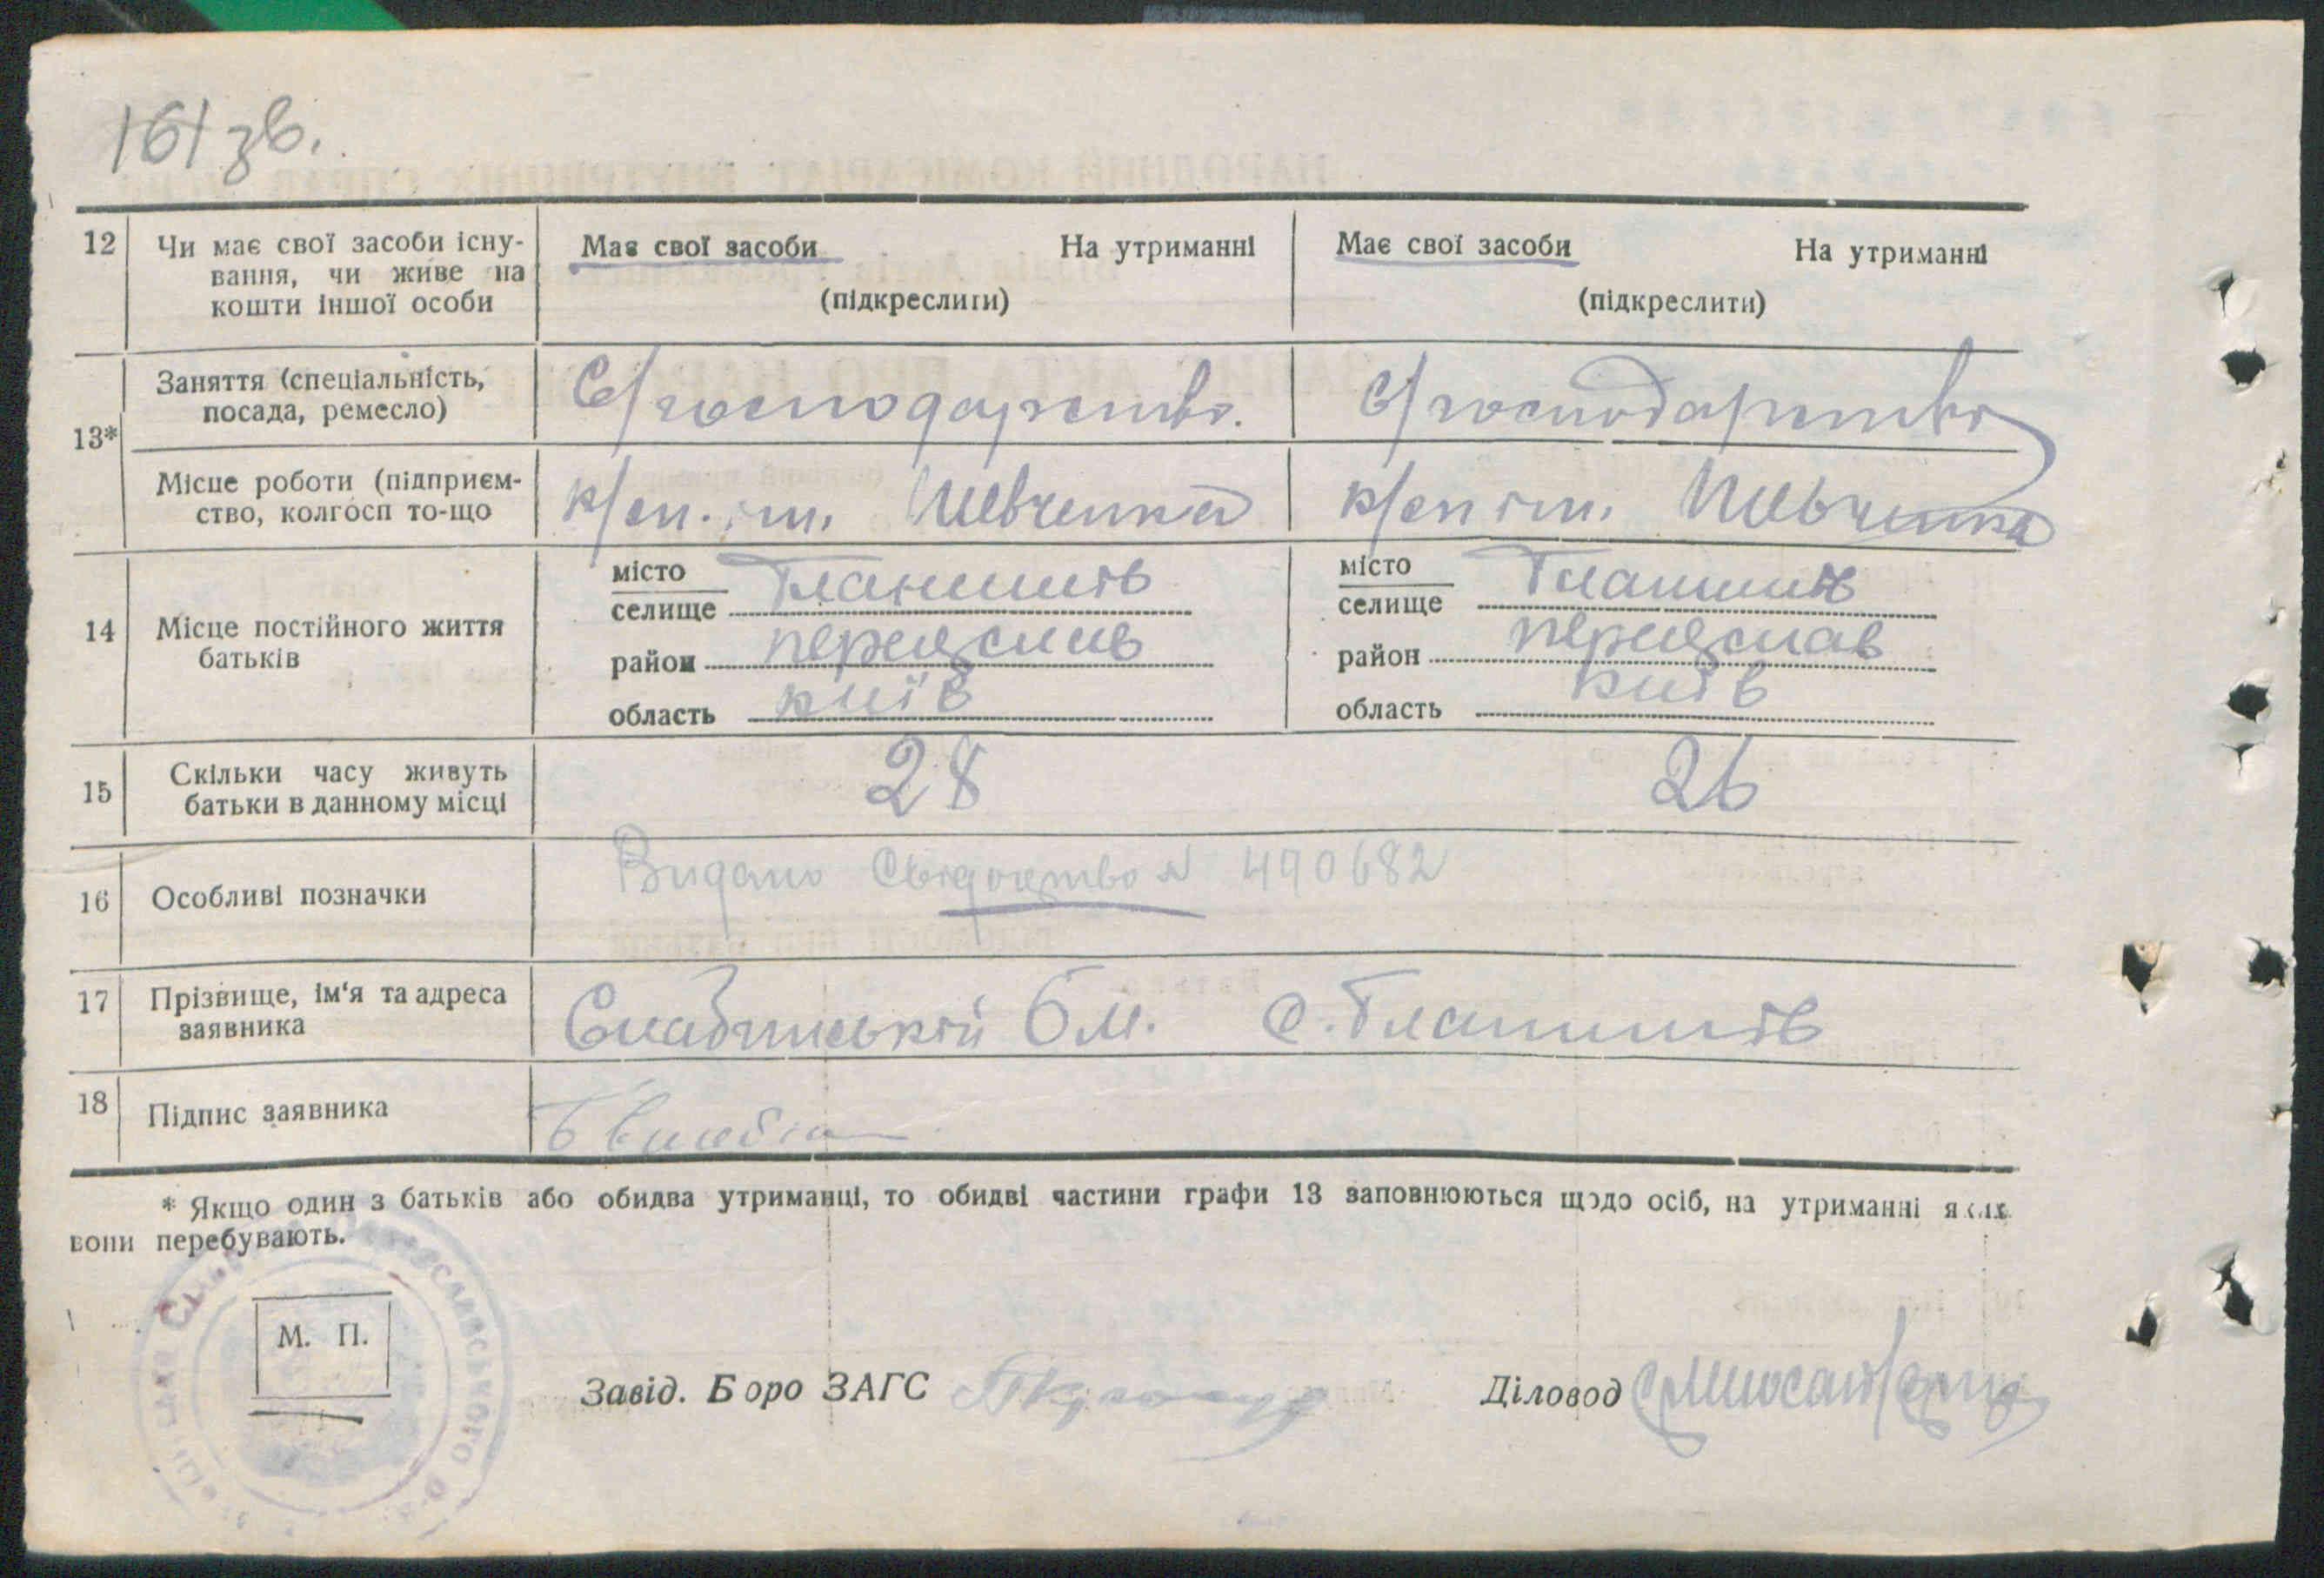 161 зв.
12
Чи має свої засоби існу-
вання, чи живе на
кошти іншої особи
Має свої засоби На утриманні
(підкреслити)
Має свої засоби На утриманні
(підкреслити)
13*
Заняття (спеціальність,
посада, ремесло)
С/господарство.
С/господарство
Місце роботи (підприєм-
ство, колгосп то-що
к/сп. ім. Шевченка
к/сп ім. Шевченка
14
Місце постійного життя
батьків
місто
селище Гланишів
район переяслав
область київ
місто
селище Гланишів
район переяслав
область київ
15
Скільки часу живуть
батьки в данному місці
28
26
16
Особливі позначки
Видано Свідоцтво № 490682
17
Прізвище, ім'я та адреса
заявника
Слабинській О М. с. Гланишів
18
Підпис заявника
* Якщо один з батьків або обидва утриманці, то обидві частини графи 13 заповнюються щодо осіб, на утриманні яких
вони перебувають.
М. П.
Завід. Бюро ЗАГС
Діловод